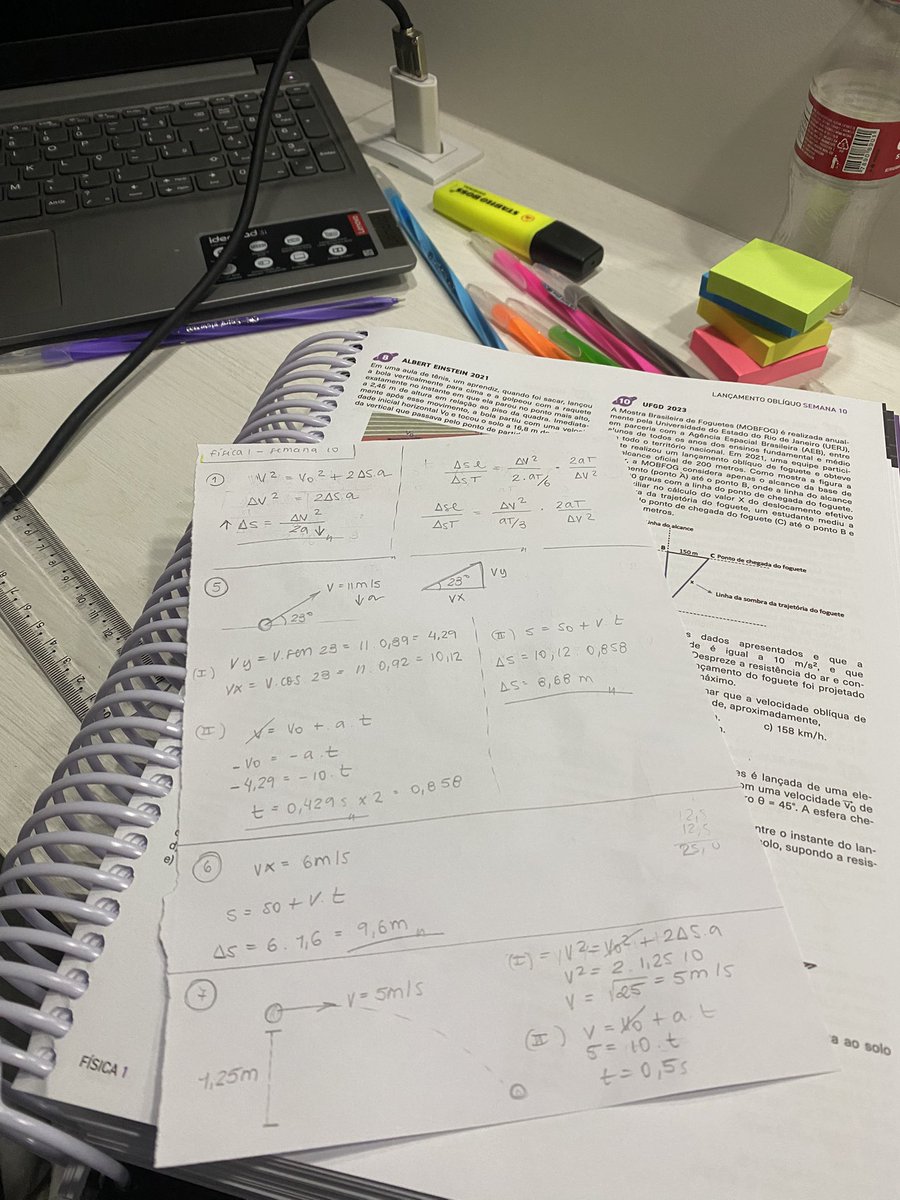 ideapad 3i
Lenovo
STABILO BOSS
FÍSICA 1
LANÇAMENTO OBLÍQUO SEMANA 10
8 ALBERT EINSTEIN 2021
Em uma aula de tênis, um aprendiz, quando foi sacar, lançou
a bola verticalmente para cima e a golpeou com a raquete
exatamente no instante em que ela parou no ponto mais alto,
a 2,45 m de altura em relação ao piso da quadra. Imediata-
mente após esse movimento, a bola partiu com uma veloci
dade inicial horizontal V0 e tocou o solo a 16,8 m
da vertical que passava pelo ponto de
10 UFGD 2023
A Mostra Brasileira de Foguetes (MOBFOG) é realizada anual-
mente pela Universidade do Estado do Rio de Janeiro (UERJ),
em parceria com a Agência Espacial Brasileira (AEB), entre
alunos de todos os anos dos ensinos fundamental e médio
todo o território nacional. Em 2021, uma equipe partici-
te realizou um lançamento oblíquo de foguete e obteve
alcance oficial de 200 metros. Como mostra a figura a
a MOBFOG considera apenas o alcance da base de
mento (ponto A) até o ponto B, onde a linha do alcance
graus com a linha do ponto de chegada do foguete.
iliar no cálculo do valor X do deslocamento efetivo
ra da trajetória do foguete, um estudante mediu a
do ponto de chegada do foguete (C) até o ponto B e
metros.
inha do alcance
B 150 m C Ponto de chegada do foguete
x
Linha da sombra da trajetória do foguete
s dados apresentados e que a
de é igual a 10 m/s², e que
Despreze a resistência do ar e con-
nçamento do foguete foi projetado
máximo.
mar que a velocidade oblíqua de
de, aproximadamente,
c) 158 km/h.
es é lançada de uma ele-
om uma velocidade V0 de
ro θ = 45°. A esfera che-
ntre o instante do lan-
solo, supondo a resis-
a ao solo
e)
física 1 - semana 10
1 V² = V0² + 2ΔS.a
ΔV² = 2ΔS.a
↑ ΔS = ΔV² / 2a ↓
Δsl / ΔsT = ΔV² / 2.aT/6 · 2aT / ΔV²
Δsl / ΔsT = ΔV² / aT/3 · 2aT / ΔV²
5 V = 11m/s
↓a
23°
23° Vy
Vx
(I) Vy = V.sen 23 = 11.0,39 = 4,29
Vx = V.cos 23 = 11.0,92 = 10,12
(II) V = V0 + a.t
-V0 = -a.t
-4,29 = -10.t
t = 0,429s x 2 = 0,858
(II) S = S0 + V.t
ΔS = 10,12 . 0,858
ΔS = 8,68 m
6 Vx = 6m/s
S = S0 + V.t
ΔS = 6 . 1,6 = 9,6m
12,5
12,5
25,0
7 V = 5m/s
1,25m
(I) = V² = V0² + 2ΔS.a
V² = 2 . 1,25 10
V = √25 = 5m/s
(II) V = V0 + a.t
5 = 10.t
t = 0,5s